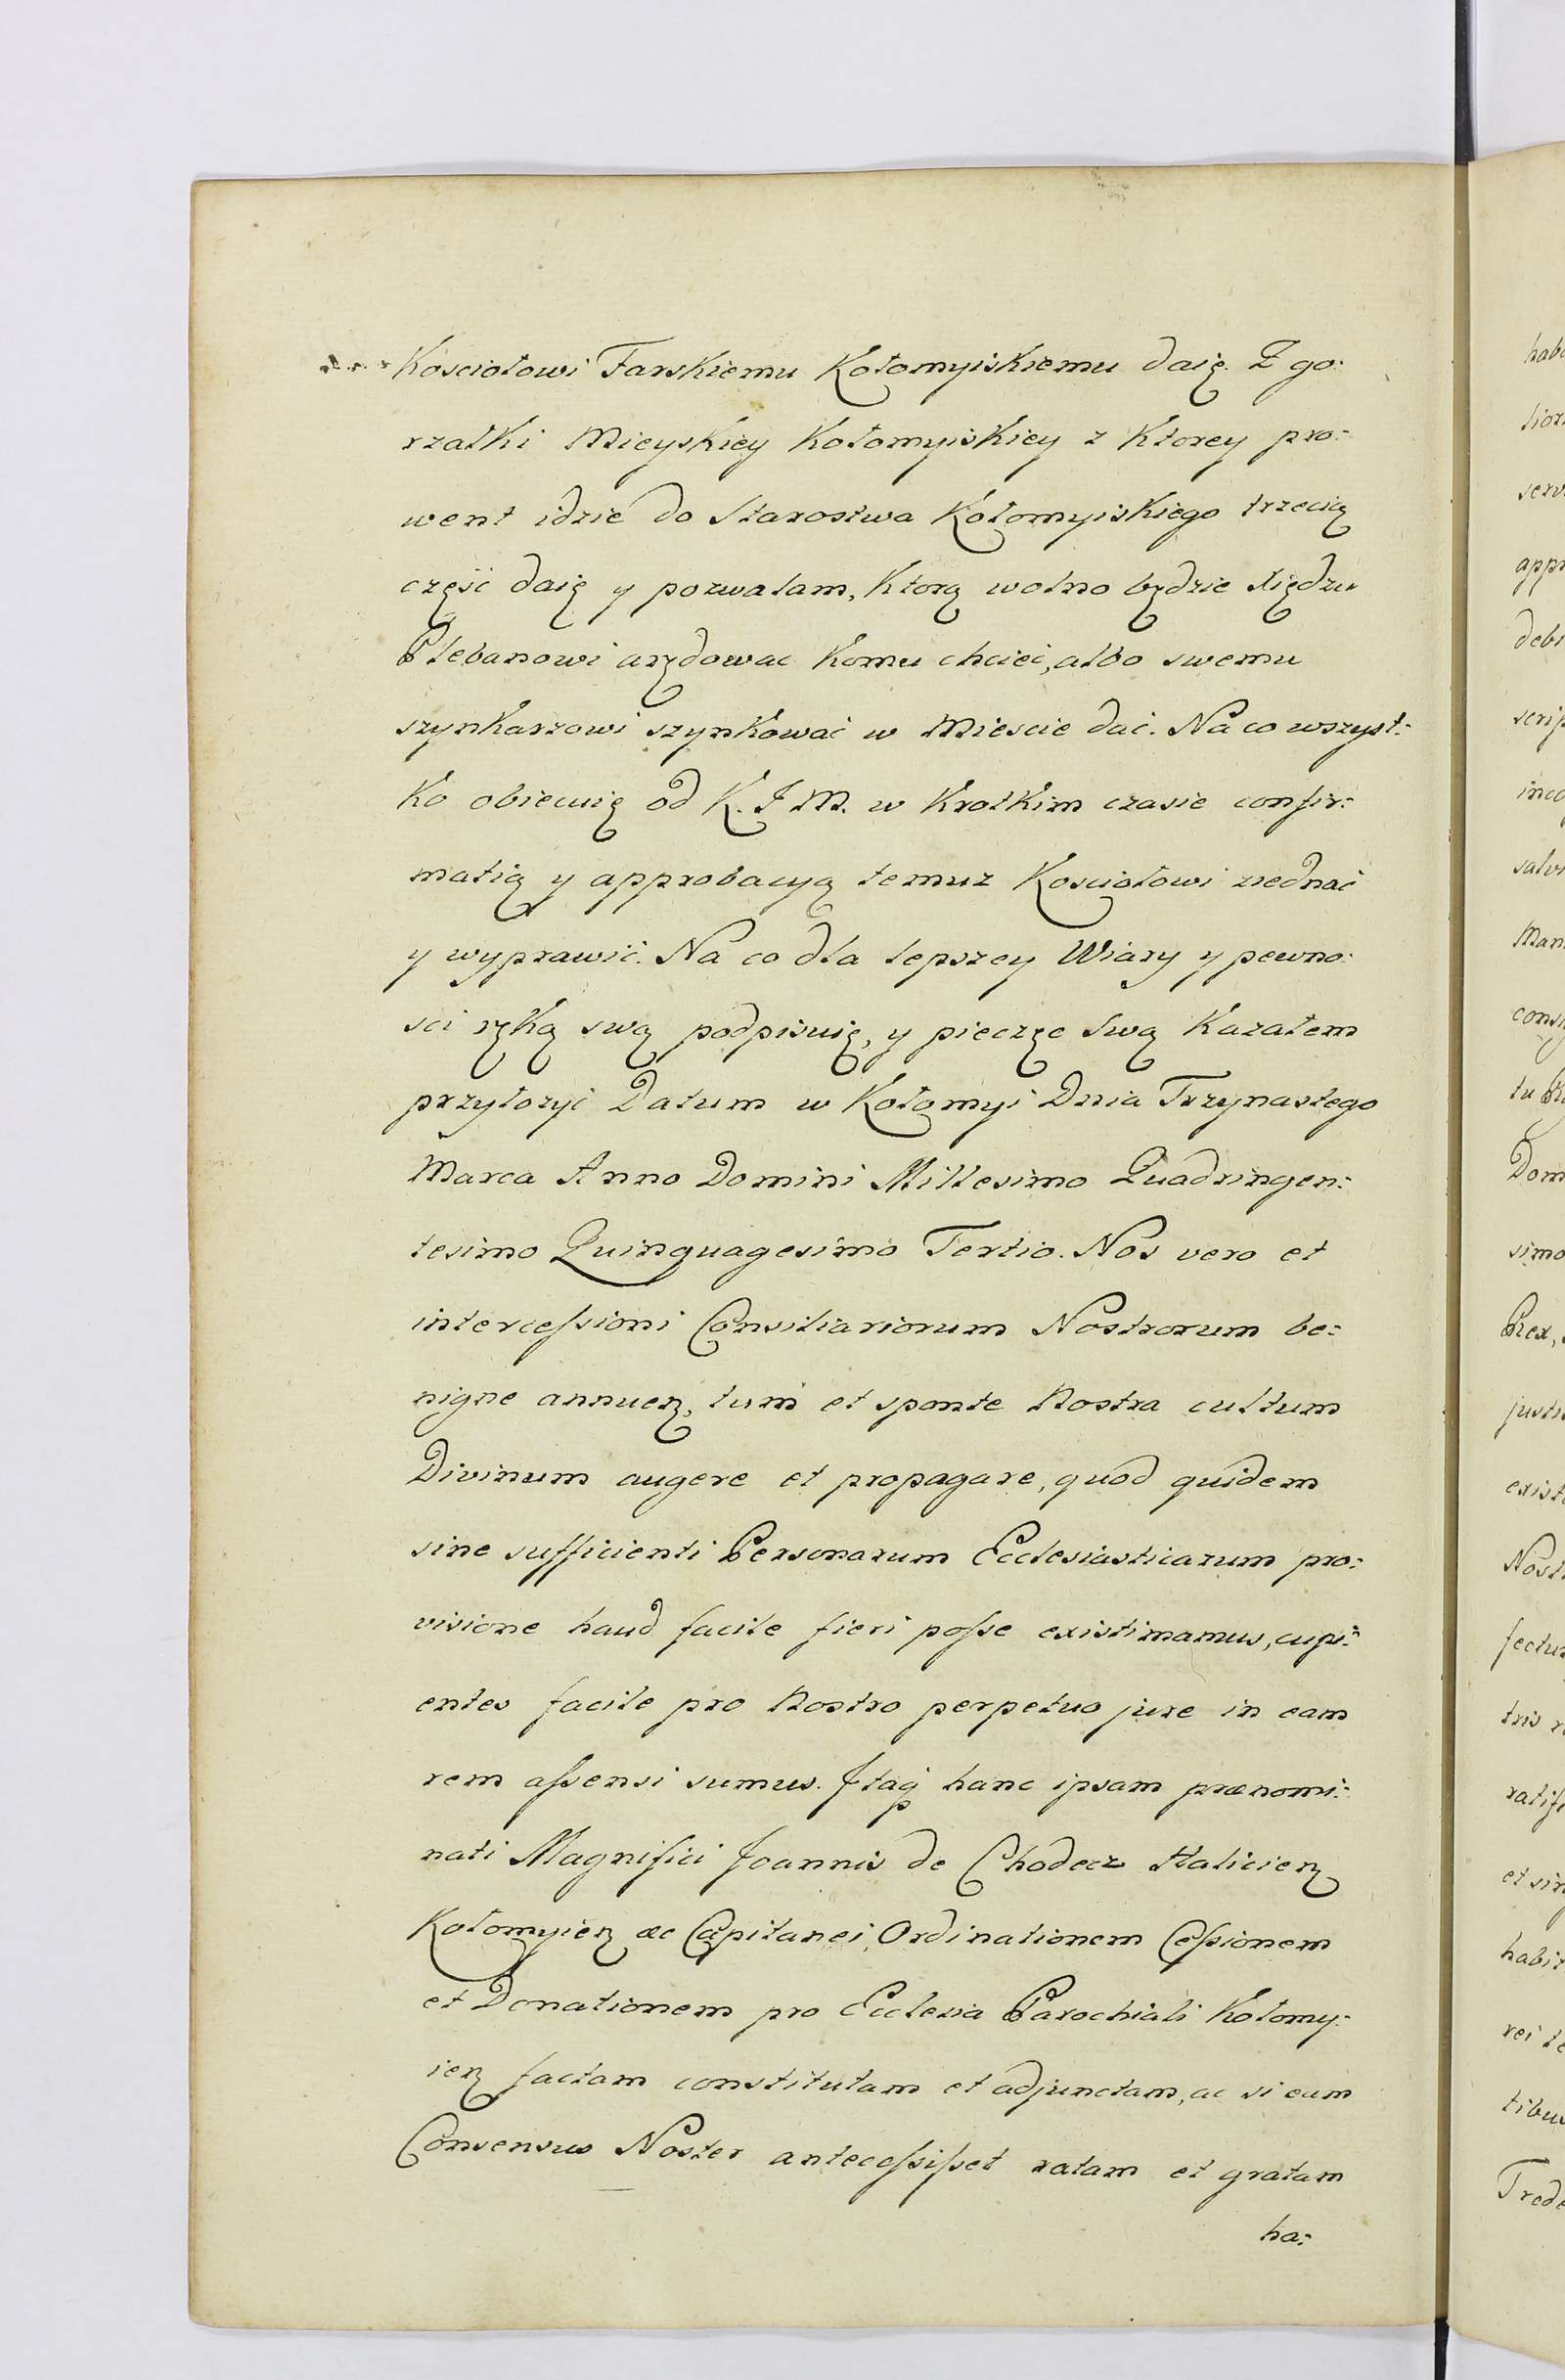 Kosciołowi Farskiemu Kołomyiskiemu daię. Z go:
rzałki Mieyskiey Kołomyiskiey z Ktorey pro:
went idzie do Starostwa Kołomyiskiego trzecią
część daię y pozwalam, Ktorą wolno będzie Xiędzu
Plebanowi arędowac Komu chcieć, albo swemu
szynkarzowi szynkować w Miescie dać. Na co wszyst:
Ko obiecuię od K. J. M. w Krotkim czasie confir:
matią y approbacyą temuz Kosciołowi ziednać
y wyprawić. Na co dla lepszey Wiary y pewno:
sci ręką swą podpisuię, y pieczęc Swą Kazałem
przyłozyć Datum w Kołomyi Dnia Trzynastego
Marca Anno Domini Millesimo Quadringen:
tesimo Quinquagesimo Tertio. Nos vero et
intercessioni Consiliariorum Nostrorum be:
nigne annueñ, tum et sponte Nostra cultum
Divinum augere et propagare, quod quidem
sine sufficienti Personarum Ecclesiasticarum pro:
visione haud facile fieri posse existimamus, cupi:
entes facile pro Nostro perpetuo jure in eam
rem assensi sumus. Itaq hanc ipsam prænomi:
nati Magnifici Joannis de Chodecz Halicień
Kołomyień æc Capitanei, Ordinationem Cessionem
et Donationem pro Ecclesia Parochiali Kołomy:
ień factam constitutam et adjunctam, ac si eum
Consensus Noster antecessisset ratam et gratam
ha:
habe
lior
serv
appr
debi
scrip
inco
salv
Man
cons
tu
Dom
simo
Rex,
justi
exist
Nost
fectu
tris
ratif
et sin
habit
rei te
tibus
Trede